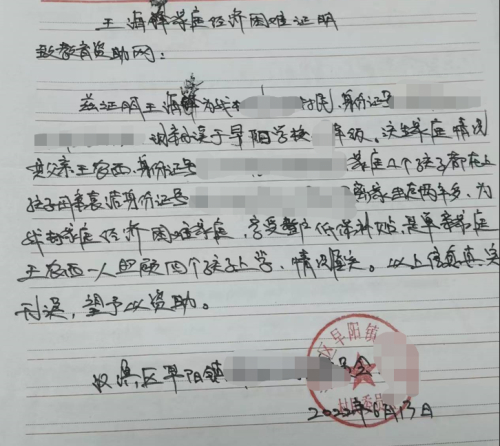 王海锋家庭经济困难证明
致教育资助网：
兹证明王海锋为我村 村民，身份证号
现就读于早阳学校 年级。该生家庭情况
其父亲王农西，身份证号 家庭4个孩子都在上
孩子母亲袁 身份证号 离家出走两年多，为
我村家庭经济困难家庭，享受整户低保补贴，是单亲家庭
王农西一人照顾四个孩子上学，情况属实。以上信息真实
有误，望予以资助。
汉滨区早阳镇 委员会
区早阳镇
村民委员
2022年6月13日